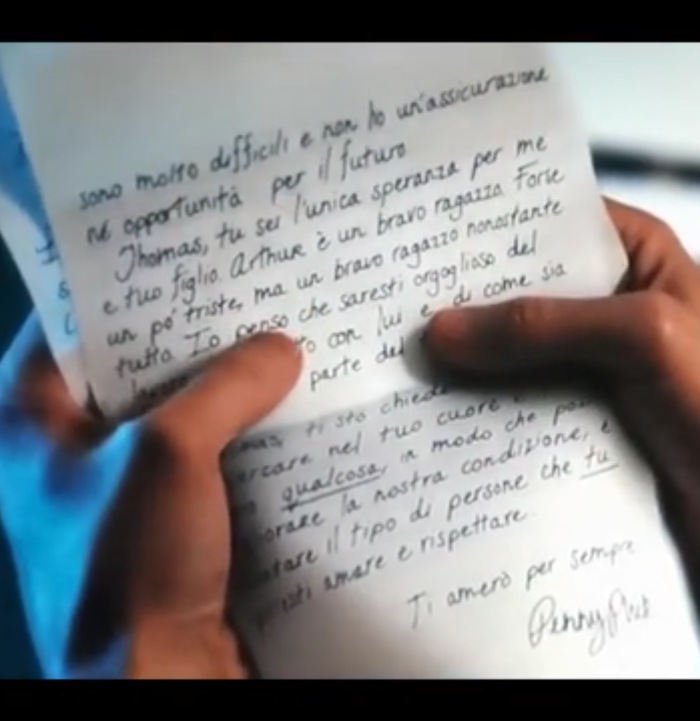 sono molto difficili e non ho un'assicurazione
né opportunità per il futuro
Thomas, tu sei l'unica speranza per me
e tuo figlio. Arthur è un bravo ragazzo. Forse
un po' triste, ma un bravo ragazzo nonostante
tutto. Io penso che saresti orgoglioso del
to con lui e di come sia
parte del
ti sto chied
rcare nel tuo cuore
qualcosa, in modo che po
orare la nostra condizione, e
ntare il tipo di persone che tu
resti amare e rispettare.
Ti amerò per sempre
Penny